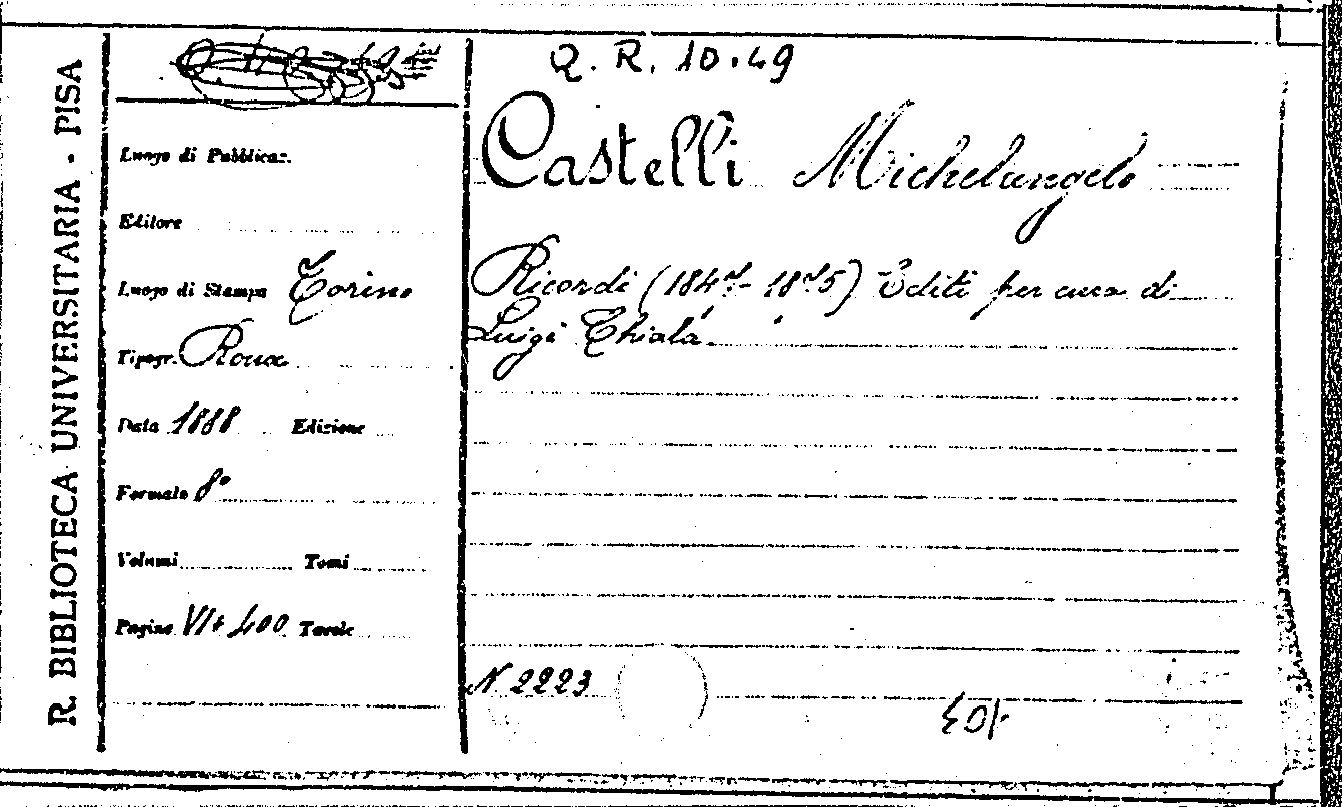 R. BIBLIOTECA UNIVERSITARIA - PISA
Q. R. 10.49
Castelli Michelangelo
Ricordi (1847-1875) Editi per cura di
Luigi Chialà.
N 2223
Luogo di Pubblicaz.
Editore
Luogo di Stampa Torino
Tipogr. Roux
Data 1888 Edizione
Formato 8°
Volumi Tomi
Pagine VI+400 Tavole